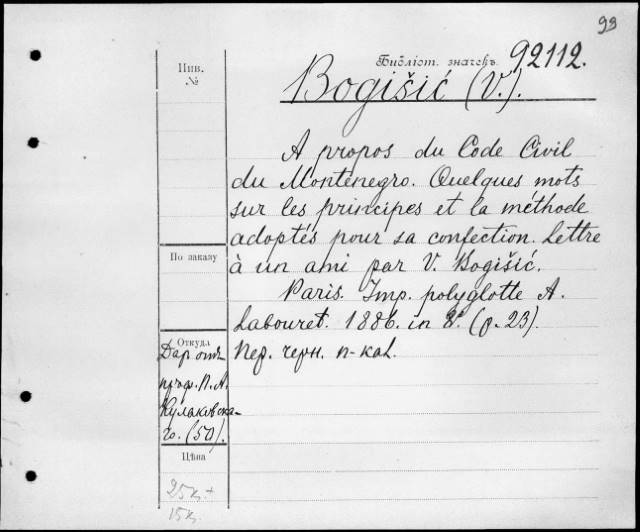 99
Библіот. значекъ. 92112.
Инв.
№
Bogišić (V.).
A propos du Code Civil
du Monténégro. Quelques mots
sur les principes et la méthode
adoptés pour sa confection. Lettre
à un ami par V. Bogišić.
Paris. Imp. polyglotte A.
Labouret. 1886. in 8° (p. 23).
Пер. черн. п-кал.
По заказу
Откуда
Даръ отъ
проф. П. А.
Кулаковска-
го. (50).
Цѣна
25к. +
15к.